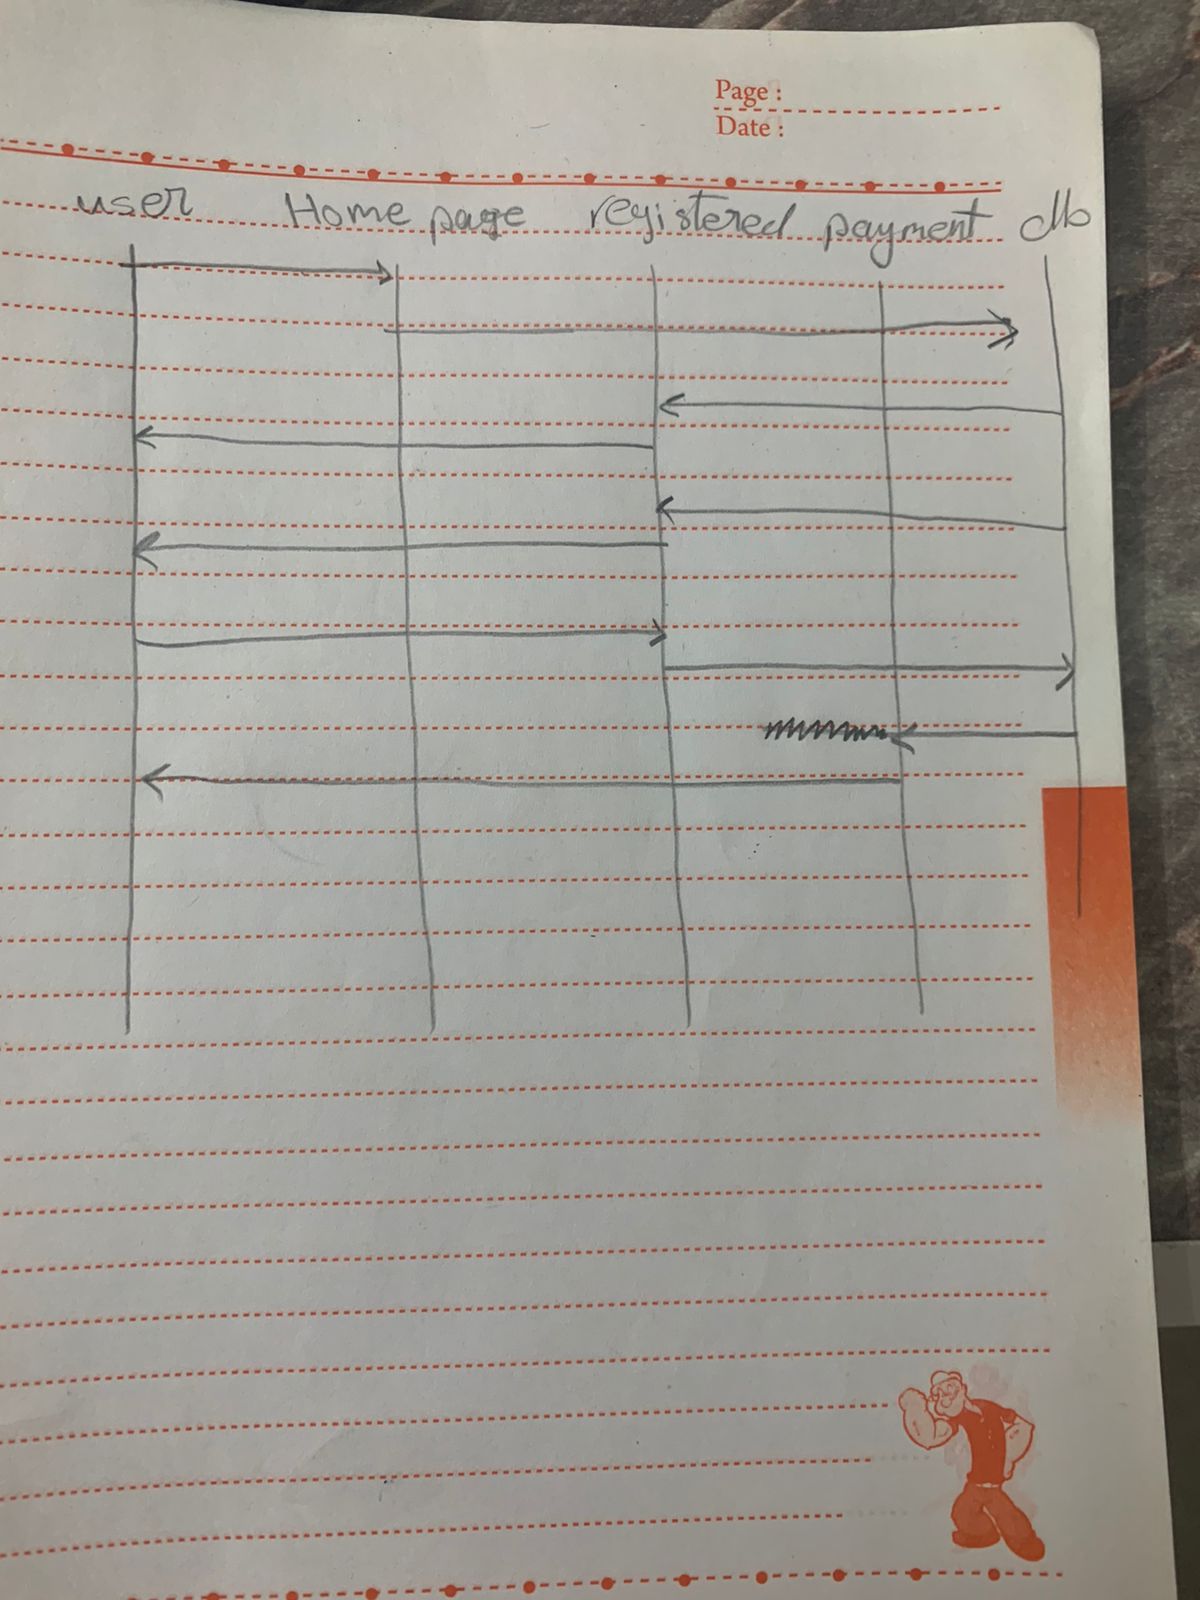 Page :
Date :
user Home page registered payment db